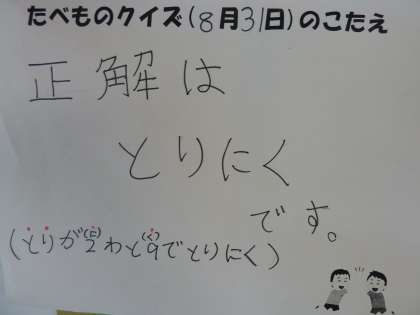 たべものクイズ(8月31日)のこたえ
正解は
とりにく
です。
(とりが2(に)わと9(く)でとりにく)